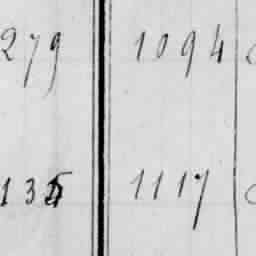 279 1094
135 1117